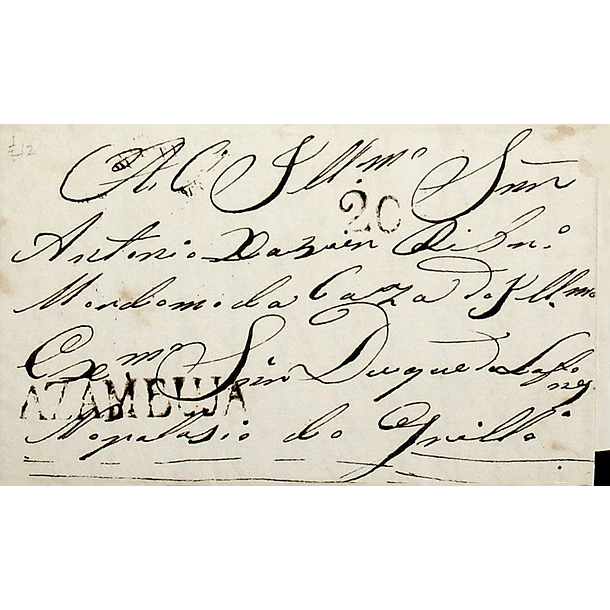 £12
A O Ill.mo Snr
20
Antonio Xavier
Mordomo da Caza do Ill.mo
Exmo Snr Duque de Lafones
AZAMBUJA
No palasio do Grillo